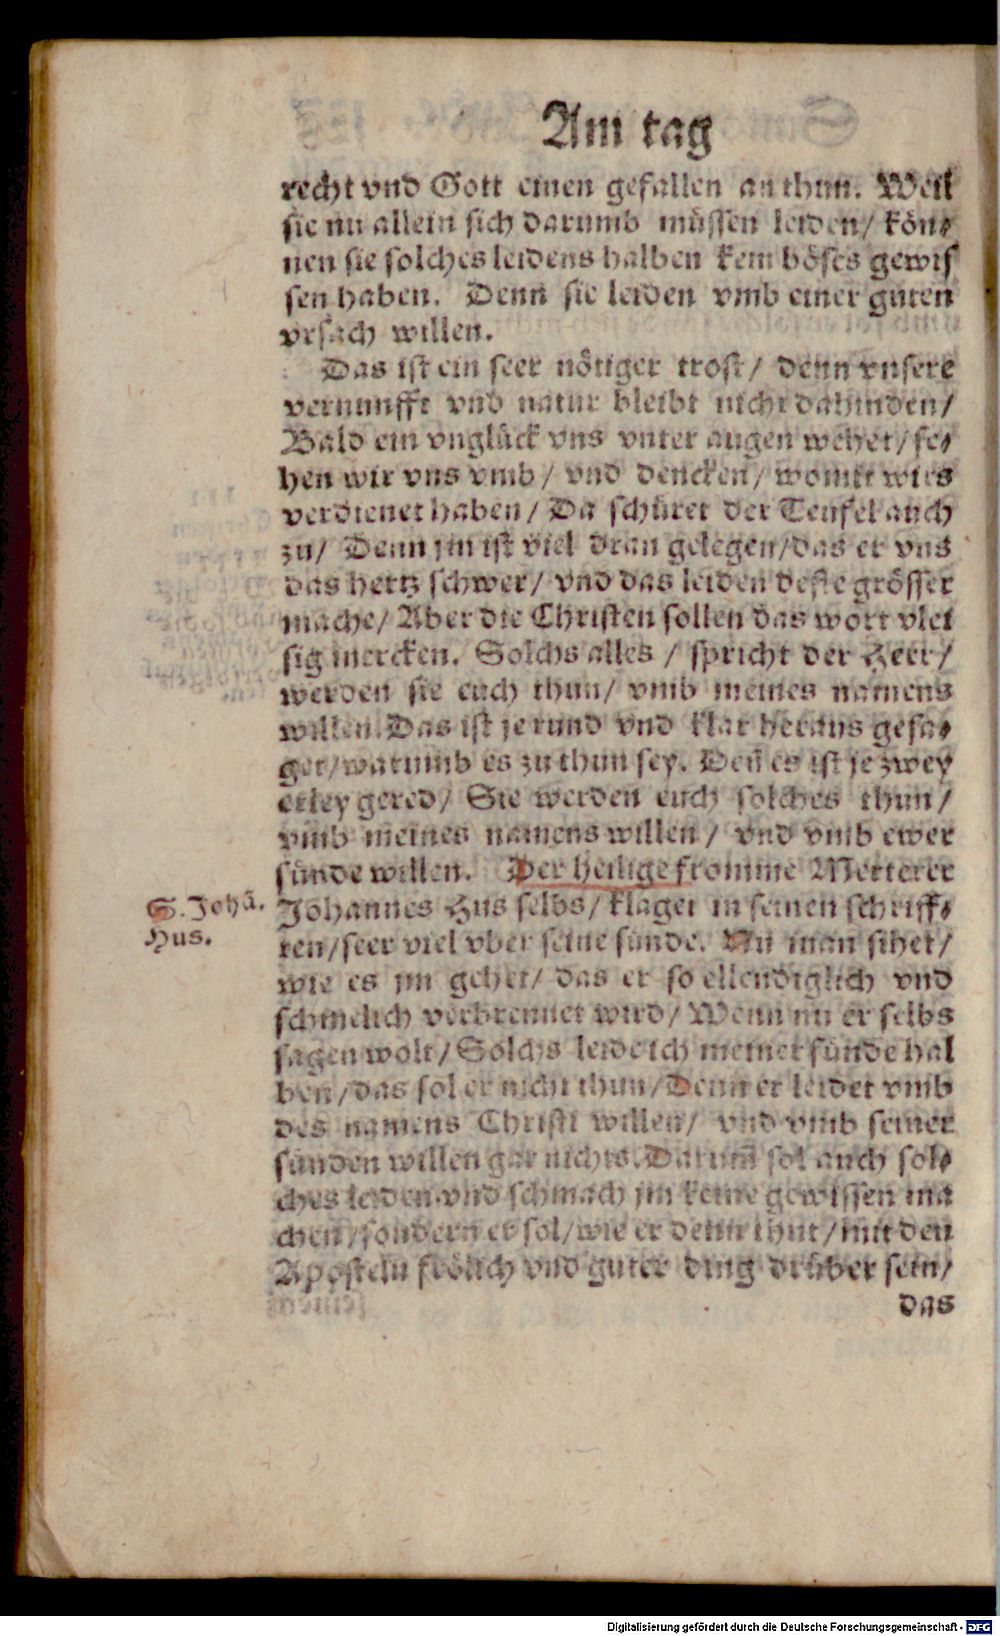 Am tag
recht vnd Gott einen gefallen an thun. Weil
sie nu allein sich darumb müssen leiden/ kön⸗
nen sie solches leidens halben kein böses gewis
sen haben. Denn sie leiden vmb einer guten
vrsach willen.
Das ist ein seer nötiger trost/ denn vnsere
vernunfft vnd natur bleibt nicht dahinden/
Bald ein vnglück vns vnter augen wehet/ se⸗
hen wir vns vmb/ vnd dencken/ womit wirs
verdienet haben/ Da schüret der Teufel auch
zu/ Denn jm ist viel dran gelegen/ das er vns
das hertz schwer/ vnd das leiden deste grösser
mache/ Aber die Christen sollen das wort vlei
sig mercken. Solchs alles/ spricht der Herr/
werden sie euch thun/ vmb meines namens
willen. Das ist je rund vnd klar heraus gesa⸗
get/ warumb es zu thun sey. Deñ es ist je zwey
erley gered/ Sie werden euch solches thun/
vmb meines namens willen/ vnd vmb ewer
sünde willen. Der heilige fromme Merterer
S. Johã.
Hus.
Johannes Hus selbs/ klaget in seinen schriff⸗
ten/ seer viel vber seine sünde. Nu man sihet/
wie es jm gehet/ das er so ellendiglich vnd
schmelich verbrennet wird/ Wenn nu er selbs
sagen wolt/ Solchs leide ich meiner sünde hal
ben/ das sol er nicht thun/ Denn er leidet vmb
des namens Christi willen/ vnd vmb seiner
sünden willen gar nichts. Darum̃ sol auch sol⸗
ches leiden vnd schmach jm keine gewissen ma
chen/ sondern er sol/ wie er denn thut/ mit den
Aposteln frölich vnd guter ding drüber sein/
das
Digitalisierung gefördert durch die Deutsche Forschungsgemeinschaft - DFG